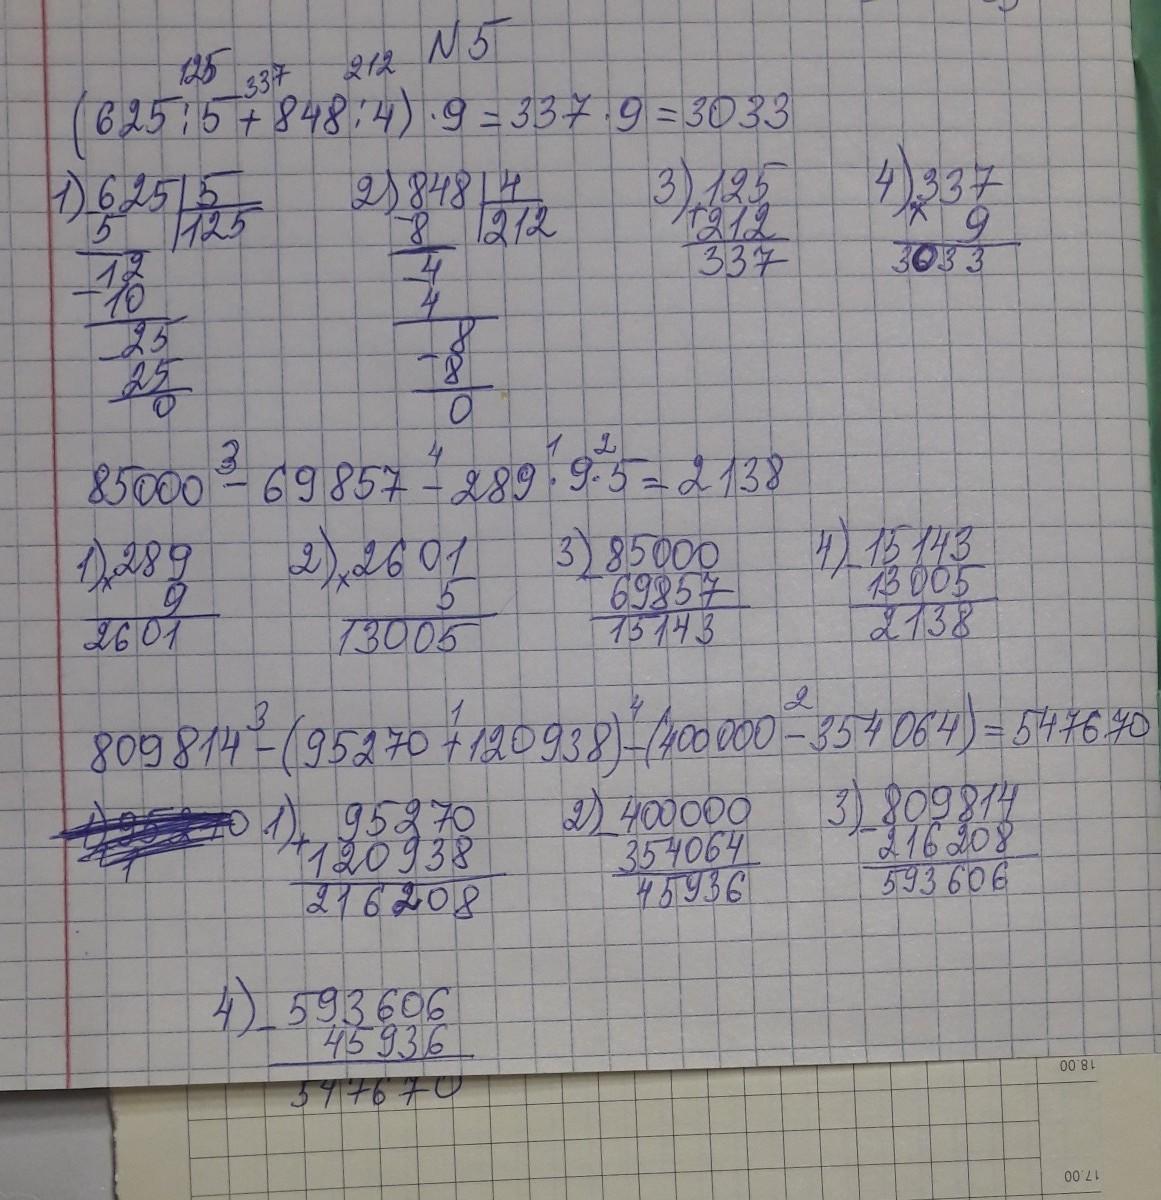 N5
125 337 212
(625:5+848:4)·9=337·9=3033
1) 625 5 2) 848 4 3) 125 4) 337
5 125 8 212 + 212 × 9
12 4 337 3033
- 10 4
- 25 8
25 - 8
0 0
3 4 1 2
85000 - 69857 - 289 · 9 · 5 = 2138
1) × 289 2) × 2601 3) - 85000 4) - 15143
9 5 69857 13005
2601 13005 15143 2138
3 1 4 2
809814 - (95270 + 120938) - (400000 - 354064) = 547670
1) + 95270 2) - 400000 3) - 809814
120938 354064 216208
216208 45936 593606
4) - 593606
45936
547670
18.00
17.00